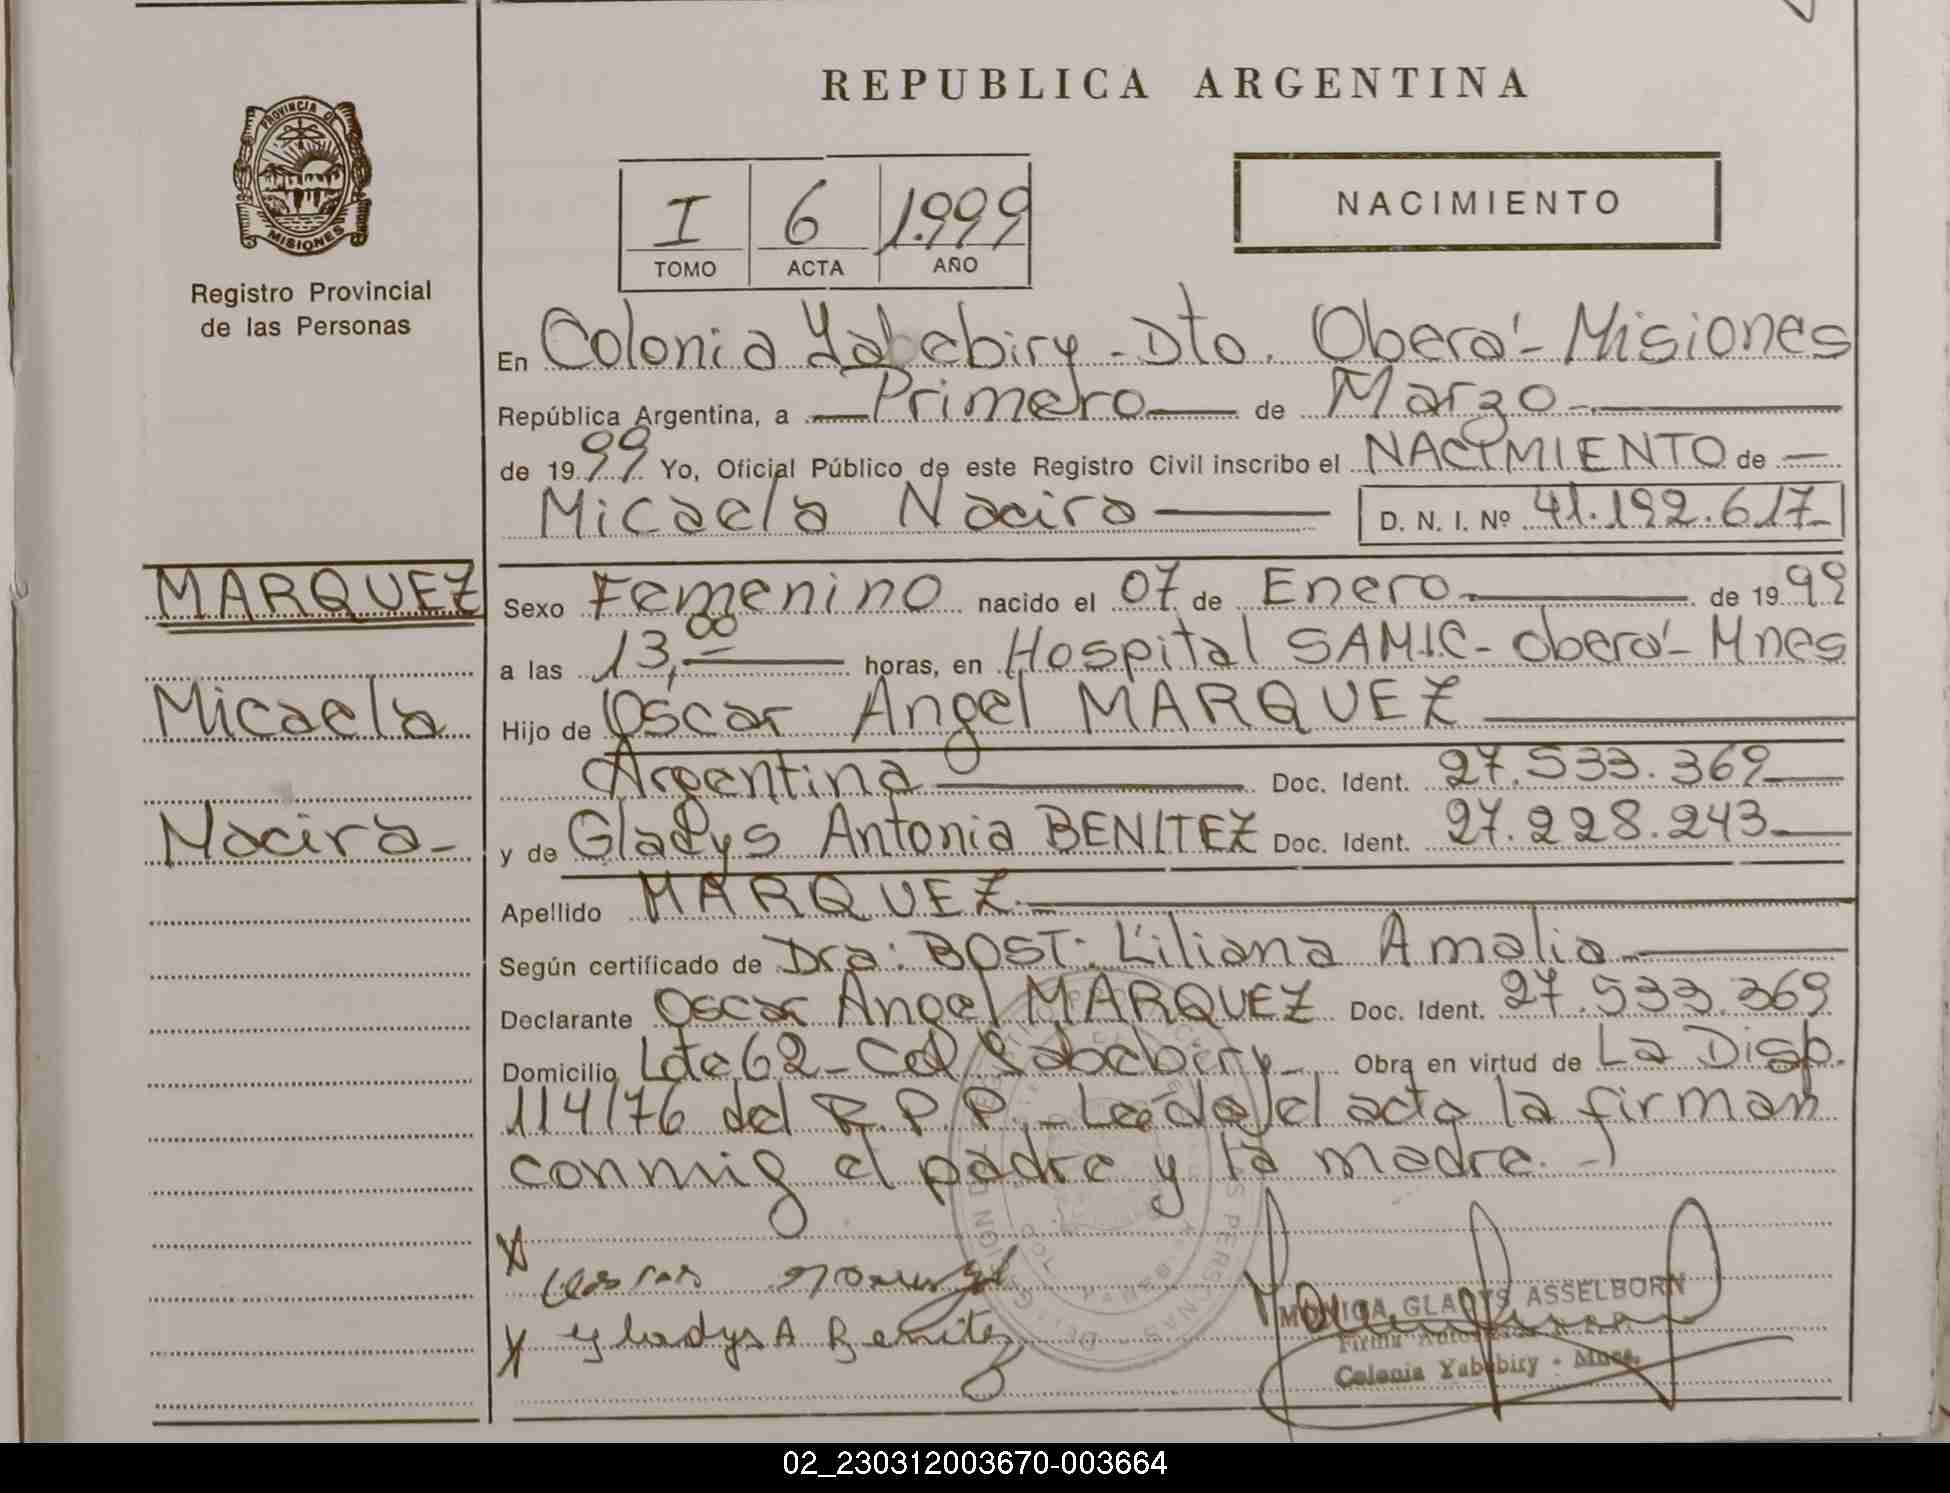 REPUBLICA ARGENTINA
PROVINCIA DE
MISIONES
Registro Provincial
de las Personas
I 6 1.999
TOMO ACTA AÑO
NACIMIENTO
En Colonia Yabebiry - Dto. Oberá - Misiones
República Argentina, a Primero de Marzo
de 1999 Yo, Oficial Público de este Registro Civil inscribo el NACIMIENTO de
Micaela Nacira D. N. I. Nº 41.192.617
MARQUEZ
Micaela
Nacira
Sexo Femenino nacido el 07 de Enero de 1999
a las 13,00 horas, en Hospital SAMIC - Oberá - Mnes
Hijo de Oscar Angel MARQUEZ
Argentina Doc. Ident. 27.533.369
y de Gladys Antonia BENITEZ Doc. Ident. 27.228.243
Apellido MARQUEZ
Según certificado de Dra: BOST: Liliana Amalia
Declarante Oscar Angel MARQUEZ Doc. Ident. 27.533.369
Domicilio Lote 62 - Col Yabebiry - Obra en virtud de La Disp.
114/76 del R.P.P. - Leída el acta la firman
conmig el padre y la madre. -
X
X Gladys A Benitez
MONICA GLADYS ASSELBORN
Firma Autorizada R.P.P.
Colonia Yabebiry - Mnes.
02_230312003670-003664